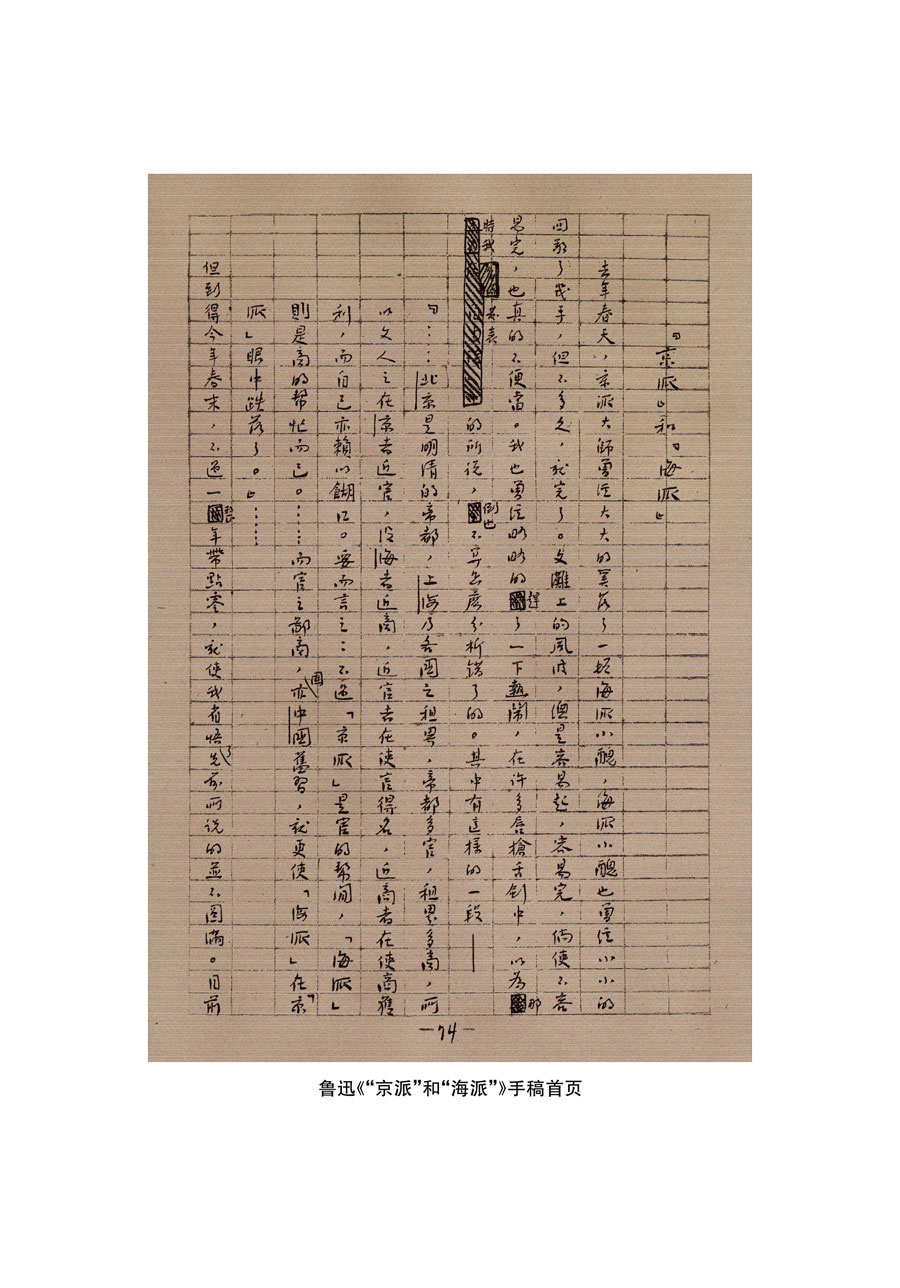 『京派』和『海派』
去年春天，京派大師曾經大大的奚落了一頓海派小醜，海派小醜也曾經小小的
回敬了幾手，但不多久，就完了。文灘上的風波，總是容易起，容易完，倘使不容
易完，也真的不便當。我也曾經略略的趕了一下熱鬧，在許多唇槍舌劍中，以為那
時我發表的所說，倒也不算怎麼分析錯了的。其中有這樣的一段——
『……北京是明清的帝都，上海乃各國之租界，帝都多官，租界多商，所
以文人之在京者近官，沒海者近商，近官者在使官得名，近商者在使商獲
利，而自己亦賴以餬口。要而言之：不過「京派」是官的幫閒，「海派」
則是商的幫忙而已。……而官之鄙商，固亦中國舊習，就更使「海派」在「京
派」眼中跌落了。』……
但到得今年春末，不過一整年帶點零，就使我省悟了先前所說的並不圓滿。目前
—74—
鲁迅《“京派”和“海派”》手稿首页